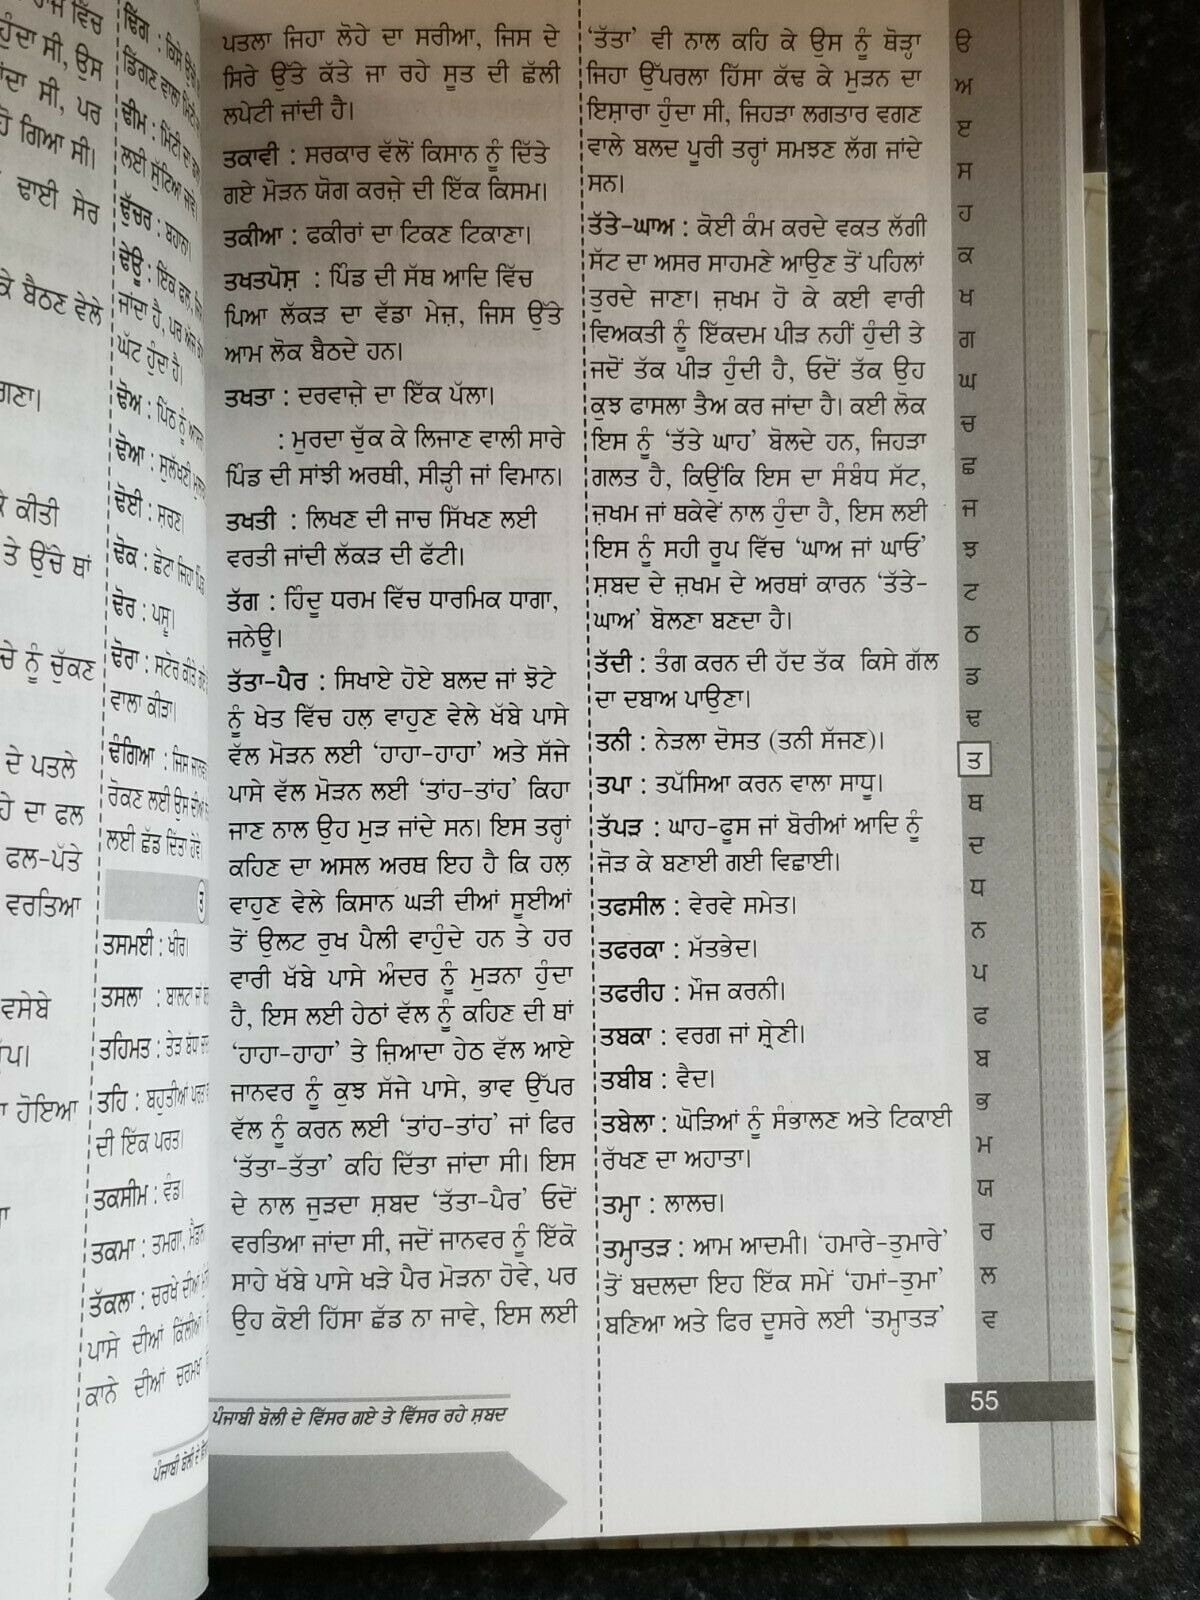 ਹੁੰਦਾ ਸੀ, ਉਸ
ਜਾਂਦਾ ਸੀ, ਪਰ
ਹੋ ਗਿਆ ਸੀ।
ਢਾਈ ਸੇਰ
ਕੇ ਬੈਠਣ ਵੇਲੇ
ਕੀਤੀ
ਤੇ ਉੱਚੇ ਥਾਂ
ਨੂੰ ਚੁੱਕਣ
ਦੇ ਪਤਲੇ
ਦਾ ਫਲ
ਫਲ-ਪੱਤੇ
ਵਰਤਿਆ
ਹੋਇਆ
ਢਿੰਗ : ਕਿਸੇ
ਡਿੱਗਣ ਵਾਲਾ
ਢੀਮ : ਮਿੱਟੀ ਦਾ
ਲਈ ਸੁੱਟਿਆ ਜਾਵੇ।
ਢੁੱਚਰ : ਬਹਾਨਾ।
ਢੇਊ : ਇੱਕ ਫਲ,
ਜਾਂਦਾ ਹੈ, ਪਰ ਅੱਜ
ਘੱਟ ਹੁੰਦਾ ਹੈ।
ਢੋਅ : ਪਿੱਠ ਨੂੰ
ਢੋਆ : ਸੁਲੱਖਣੀ
ਢੋਈ : ਸ਼ਰਣ।
ਢੋਕ : ਛੋਟਾ ਜਿਹਾ ਪਿੰਡ
ਢੋਰ : ਪਸ਼ੂ।
ਢੋਰਾ : ਸਟੋਰ ਕੀਤੇ
ਵਾਲਾ ਕੀੜਾ।
ਢੰਗਿਆ : ਜਿਸ
ਰੋਕਣ ਲਈ ਉਸ ਦੀਆਂ
ਲਈ ਛੱਡ ਦਿੱਤਾ ਹੋਵੇ।
ਤ
ਤਸਮਈ : ਖੀਰ।
ਤਸਲਾ : ਬਾਲਟ
ਤਹਿਮਤ : ਤੇੜ ਬੰਧ
ਤਹਿ : ਬਹੁਤੀਆਂ ਪਰਤਾਂ
ਦੀ ਇੱਕ ਪਰਤ।
ਤਕਸੀਮ : ਵੰਡ।
ਤਕਮਾ : ਤਮਗਾ, ਮੈਡਲ
ਤੱਕਲਾ : ਚਰਖੇ ਦੀਆਂ
ਪਾਸੇ ਦੀਆਂ ਕਿੱਲੀਆਂ
ਕਾਨੇ ਦੀਆਂ ਚਰਮਖ
ਪੰਜਾਬੀ ਬੋਲੀ ਦੇ
ਪਤਲਾ ਜਿਹਾ ਲੋਹੇ ਦਾ ਸਰੀਆ, ਜਿਸ ਦੇ
ਸਿਰੇ ਉੱਤੇ ਕੱਤੇ ਜਾ ਰਹੇ ਸੂਤ ਦੀ ਛੱਲੀ
ਲਪੇਟੀ ਜਾਂਦੀ ਹੈ।
ਤਕਾਵੀ : ਸਰਕਾਰ ਵੱਲੋਂ ਕਿਸਾਨ ਨੂੰ ਦਿੱਤੇ
ਗਏ ਮੋੜਨ ਯੋਗ ਕਰਜ਼ੇ ਦੀ ਇੱਕ ਕਿਸਮ।
ਤਕੀਆ : ਫਕੀਰਾਂ ਦਾ ਟਿਕਣ ਟਿਕਾਣਾ।
ਤਖਤਪੋਸ਼ : ਪਿੰਡ ਦੀ ਸੱਥ ਆਦਿ ਵਿੱਚ
ਪਿਆ ਲੱਕੜ ਦਾ ਵੱਡਾ ਮੇਜ਼, ਜਿਸ ਉੱਤੇ
ਆਮ ਲੋਕ ਬੈਠਦੇ ਹਨ।
ਤਖਤਾ : ਦਰਵਾਜ਼ੇ ਦਾ ਇੱਕ ਪੱਲਾ।
: ਮੁਰਦਾ ਚੁੱਕ ਕੇ ਲਿਜਾਣ ਵਾਲੀ ਸਾਰੇ
ਪਿੰਡ ਦੀ ਸਾਂਝੀ ਅਰਥੀ, ਸੀੜ੍ਹੀ ਜਾਂ ਵਿਮਾਨ।
ਤਖਤੀ : ਲਿਖਣ ਦੀ ਜਾਚ ਸਿੱਖਣ ਲਈ
ਵਰਤੀ ਜਾਂਦੀ ਲੱਕੜ ਦੀ ਫੱਟੀ।
ਤੱਗ : ਹਿੰਦੂ ਧਰਮ ਵਿੱਚ ਧਾਰਮਿਕ ਧਾਗਾ,
ਜਨੇਊ।
ਤੱਤਾ-ਪੈਰ : ਸਿਖਾਏ ਹੋਏ ਬਲਦ ਜਾਂ ਝੋਟੇ
ਨੂੰ ਖੇਤ ਵਿੱਚ ਹਲ਼ ਵਾਹੁਣ ਵੇਲੇ ਖੱਬੇ ਪਾਸੇ
ਵੱਲ ਮੋੜਨ ਲਈ ‘ਹਾਹਾ-ਹਾਹਾ’ ਅਤੇ ਸੱਜੇ
ਪਾਸੇ ਵੱਲ ਮੋੜਨ ਲਈ ‘ਤਾਂਹ-ਤਾਂਹ’ ਕਿਹਾ
ਜਾਣ ਨਾਲ ਉਹ ਮੁੜ ਜਾਂਦੇ ਸਨ। ਇਸ ਤਰ੍ਹਾਂ
ਕਹਿਣ ਦਾ ਅਸਲ ਅਰਥ ਇਹ ਹੈ ਕਿ ਹਲ਼
ਵਾਹੁਣ ਵੇਲੇ ਕਿਸਾਨ ਘੜੀ ਦੀਆਂ ਸੂਈਆਂ
ਤੋਂ ਉਲਟ ਰੁਖ ਪੈਲੀ ਵਾਹੁੰਦੇ ਹਨ ਤੇ ਹਰ
ਵਾਰੀ ਖੱਬੇ ਪਾਸੇ ਅੰਦਰ ਨੂੰ ਮੁੜਨਾ ਹੁੰਦਾ
ਹੈ, ਇਸ ਲਈ ਹੇਠਾਂ ਵੱਲ ਨੂੰ ਕਹਿਣ ਦੀ ਥਾਂ
‘ਹਾਹਾ-ਹਾਹਾ’ ਤੇ ਜ਼ਿਆਦਾ ਹੇਠ ਵੱਲ ਆਏ
ਜਾਨਵਰ ਨੂੰ ਕੁਝ ਸੱਜੇ ਪਾਸੇ, ਭਾਵ ਉੱਪਰ
ਵੱਲ ਨੂੰ ਕਰਨ ਲਈ ‘ਤਾਂਹ-ਤਾਂਹ’ ਜਾਂ ਫਿਰ
‘ਤੱਤਾ-ਤੱਤਾ’ ਕਹਿ ਦਿੱਤਾ ਜਾਂਦਾ ਸੀ। ਇਸ
ਦੇ ਨਾਲ ਜੁੜਦਾ ਸ਼ਬਦ ‘ਤੱਤਾ-ਪੈਰ’ ਓਦੋਂ
ਵਰਤਿਆ ਜਾਂਦਾ ਸੀ, ਜਦੋਂ ਜਾਨਵਰ ਨੂੰ ਇੱਕੋ
ਸਾਹੇ ਖੱਬੇ ਪਾਸੇ ਖੜੇ ਪੈਰ ਮੋੜਨਾ ਹੋਵੇ, ਪਰ
ਉਹ ਕੋਈ ਹਿੱਸਾ ਛੱਡ ਨਾ ਜਾਵੇ, ਇਸ ਲਈ
ਪੰਜਾਬੀ ਬੋਲੀ ਦੇ ਵਿੱਸਰ ਗਏ ਤੇ ਵਿੱਸਰ ਰਹੇ ਸ਼ਬਦ
‘ਤੱਤਾ’ ਵੀ ਨਾਲ ਕਹਿ ਕੇ ਉਸ ਨੂੰ ਥੋੜ੍ਹਾ
ਜਿਹਾ ਉੱਪਰਲਾ ਹਿੱਸਾ ਕੱਢ ਕੇ ਮੁੜਨ ਦਾ
ਇਸ਼ਾਰਾ ਹੁੰਦਾ ਸੀ, ਜਿਹੜਾ ਲਗਤਾਰ ਵਗਣ
ਵਾਲੇ ਬਲਦ ਪੂਰੀ ਤਰ੍ਹਾਂ ਸਮਝਣ ਲੱਗ ਜਾਂਦੇ
ਸਨ।
ਤੱਤੇ-ਘਾਅ : ਕੋਈ ਕੰਮ ਕਰਦੇ ਵਕਤ ਲੱਗੀ
ਸੱਟ ਦਾ ਅਸਰ ਸਾਹਮਣੇ ਆਉਣ ਤੋਂ ਪਹਿਲਾਂ
ਤੁਰਦੇ ਜਾਣਾ। ਜ਼ਖਮ ਹੋ ਕੇ ਕਈ ਵਾਰੀ
ਵਿਅਕਤੀ ਨੂੰ ਇੱਕਦਮ ਪੀੜ ਨਹੀਂ ਹੁੰਦੀ ਤੇ
ਜਦੋਂ ਤੱਕ ਪੀੜ ਹੁੰਦੀ ਹੈ, ਓਦੋਂ ਤੱਕ ਉਹ
ਕੁਝ ਫਾਸਲਾ ਤੈਅ ਕਰ ਜਾਂਦਾ ਹੈ। ਕਈ ਲੋਕ
ਇਸ ਨੂੰ ‘ਤੱਤੇ ਘਾਹ’ ਬੋਲਦੇ ਹਨ, ਜਿਹੜਾ
ਗਲਤ ਹੈ, ਕਿਉਂਕਿ ਇਸ ਦਾ ਸੰਬੰਧ ਸੱਟ,
ਜ਼ਖਮ ਜਾਂ ਥਕੇਵੇਂ ਨਾਲ ਹੁੰਦਾ ਹੈ, ਇਸ ਲਈ
ਇਸ ਨੂੰ ਸਹੀ ਰੂਪ ਵਿੱਚ ‘ਘਾਅ ਜਾਂ ਘਾਓ’
ਸ਼ਬਦ ਦੇ ਜ਼ਖਮ ਦੇ ਅਰਥਾਂ ਕਾਰਨ ‘ਤੱਤੇ-
ਘਾਅ’ ਬੋਲਣਾ ਬਣਦਾ ਹੈ।
ਤੱਦੀ : ਤੰਗ ਕਰਨ ਦੀ ਹੱਦ ਤੱਕ ਕਿਸੇ ਗੱਲ
ਦਾ ਦਬਾਅ ਪਾਉਣਾ।
ਤਨੀ : ਨੇੜਲਾ ਦੋਸਤ (ਤਨੀ ਸੱਜਣ)।
ਤਪਾ : ਤਪੱਸਿਆ ਕਰਨ ਵਾਲਾ ਸਾਧੂ।
ਤੱਪੜ : ਘਾਹ-ਫੂਸ ਜਾਂ ਬੋਰੀਆਂ ਆਦਿ ਨੂੰ
ਜੋੜ ਕੇ ਬਣਾਈ ਗਈ ਵਿਛਾਈ।
ਤਫਸੀਲ : ਵੇਰਵੇ ਸਮੇਤ।
ਤਫਰਕਾ : ਮੱਤਭੇਦ।
ਤਫਰੀਹ : ਮੌਜ ਕਰਨੀ।
ਤਬਕਾ : ਵਰਗ ਜਾਂ ਸ਼੍ਰੇਣੀ।
ਤਬੀਬ : ਵੈਦ।
ਤਬੇਲਾ : ਘੋੜਿਆਂ ਨੂੰ ਸੰਭਾਲਣ ਅਤੇ ਟਿਕਾਈ
ਰੱਖਣ ਦਾ ਅਹਾਤਾ।
ਤਮ੍ਹਾ : ਲਾਲਚ।
ਤਮ੍ਹਾਤੜ : ਆਮ ਆਦਮੀ। ‘ਹਮਾਰੇ-ਤੁਮਾਰੇ’
ਤੋਂ ਬਦਲਦਾ ਇਹ ਇੱਕ ਸਮੇਂ ‘ਹਮਾਂ-ਤੁਮਾ’
ਬਣਿਆ ਅਤੇ ਫਿਰ ਦੂਸਰੇ ਲਈ ‘ਤਮ੍ਹਾਤੜ’
ੳ
ਅ
ੲ
ਸ
ਹ
ਕ
ਖ
ਗ
ਘ
ਚ
ਛ
ਜ
ਝ
ਟ
ਠ
ਡ
ਢ
ਤ
ਥ
ਦ
ਧ
ਨ
ਪ
ਫ
ਬ
ਭ
ਮ
ਯ
ਰ
ਲ
ਵ
55